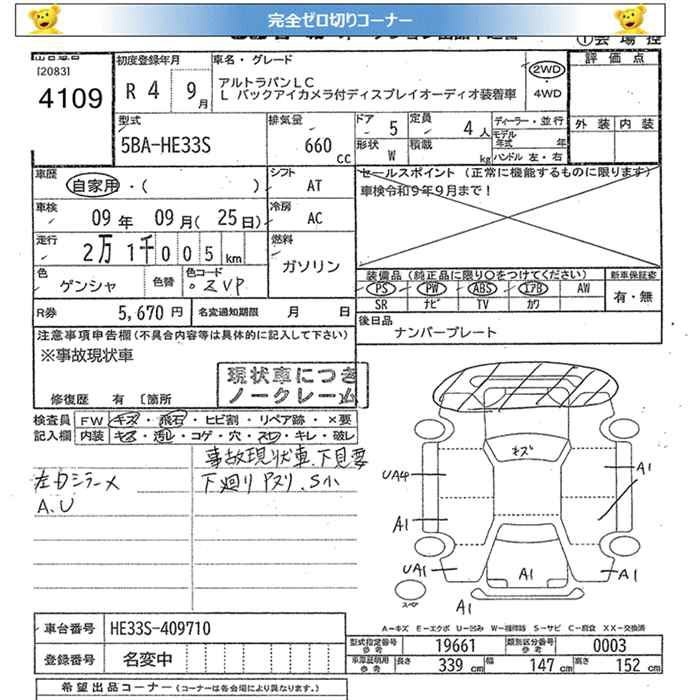 完全ゼロ切りコーナー
[2083]
4109
初度登録年月
R 4 9月
車名・グレード
アルトラパンLC
L バックアイカメラ付ディスプレイオーディオ装着車
2WD
・
4WD
評価点
外装 内装
型式
5BA-HE33S
排気量
660 CC
ドア 5
定員 4人
形状 W
積載 kg
ディーラー・並行
モデル年式 年
ハンドル 左・右
車歴
自家用・( )
シフト
AT
車検
09年 09月(25日)
冷房
AC
走行
2万1千005km
燃料
ガソリン
色
ゲンシャ
色替
色コード
ZVP
セールスポイント (正常に機能するものに限ります)
車検令和9年9月まで!
装備品(純正品に限り○をつけてください)
PS PW ABS エアB AW
SR ナビ TV カワ
新車保証書
有・無
R券 5,670円
名変通知期限 月 日
後日品
ナンバープレート
注意事項申告欄(不具合内容等は具体的に記入して下さい)
※事故現状車
修復歴 有 [箇所
現状車につき
ノークレーム
検査員
記入欄
FW キズ・飛石・ヒビ割・リペア跡・×要
内装 キズ・汚レ・コゲ・穴・スロ・キレ・破レ
事故現状車、下見要
左Dミラーメ
下廻りサビ、S小
A.U
キズ
UA4
A1
A1
UA1
A1
A1
A1
スペア
A=キズ E=エクボ U=凹み W=補修跡 S=サビ C=腐食 XX=交換済
車台番号 HE33S-409710
登録番号 名変中
型式指定番号
参考
19661
類別区分番号
参考
0003
車庫証明用
参考
長さ 339cm
幅 147cm
高さ 152cm
希望出品コーナー(コーナーは各会場により異なります。)